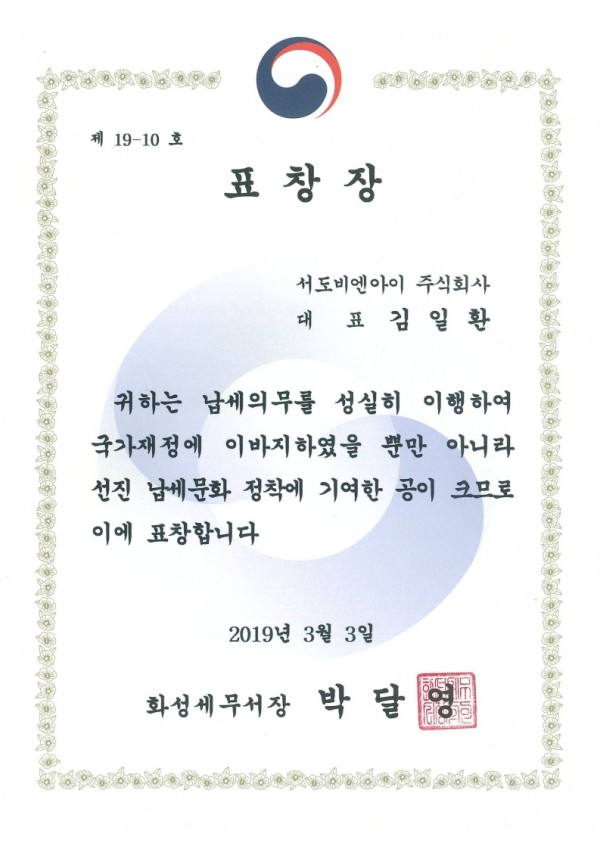 제 19-10 호
표 창 장
서도비엔아이 주식회사
대 표 김 일 환
귀하는 납세의무를 성실히 이행하여
국가재정에 이바지하였을 뿐만 아니라
선진 납세문화 정착에 기여한 공이 크므로
이에 표창합니다
2019년 3월 3일
화성세무서장 박 달 영